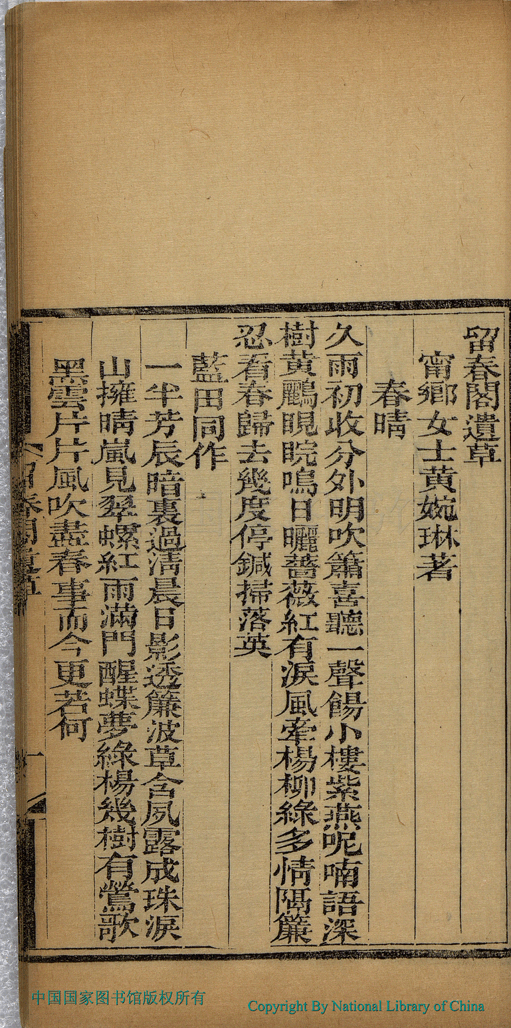 留春閣遺草
甯鄉女士黃婉琳著
春晴
久雨初收分外明吹簫喜聽一聲餳小樓紫燕呢喃語深
樹黃鸝睍睆鳴日曬薔薇紅有淚風牽楊柳綠多情隔簾
忍看春歸去幾度停鍼掃落英
藍田同作
一半芳辰暗裏過清晨日影透簾波草含夙露成珠淚
山擁晴嵐見翠螺紅雨滿門醒蝶夢綠楊幾樹有鶯歌
黑雲片片風吹盡春事而今更若何
留春閣遺草
一
中国国家图书馆版权所有
Copyright By National Library of China